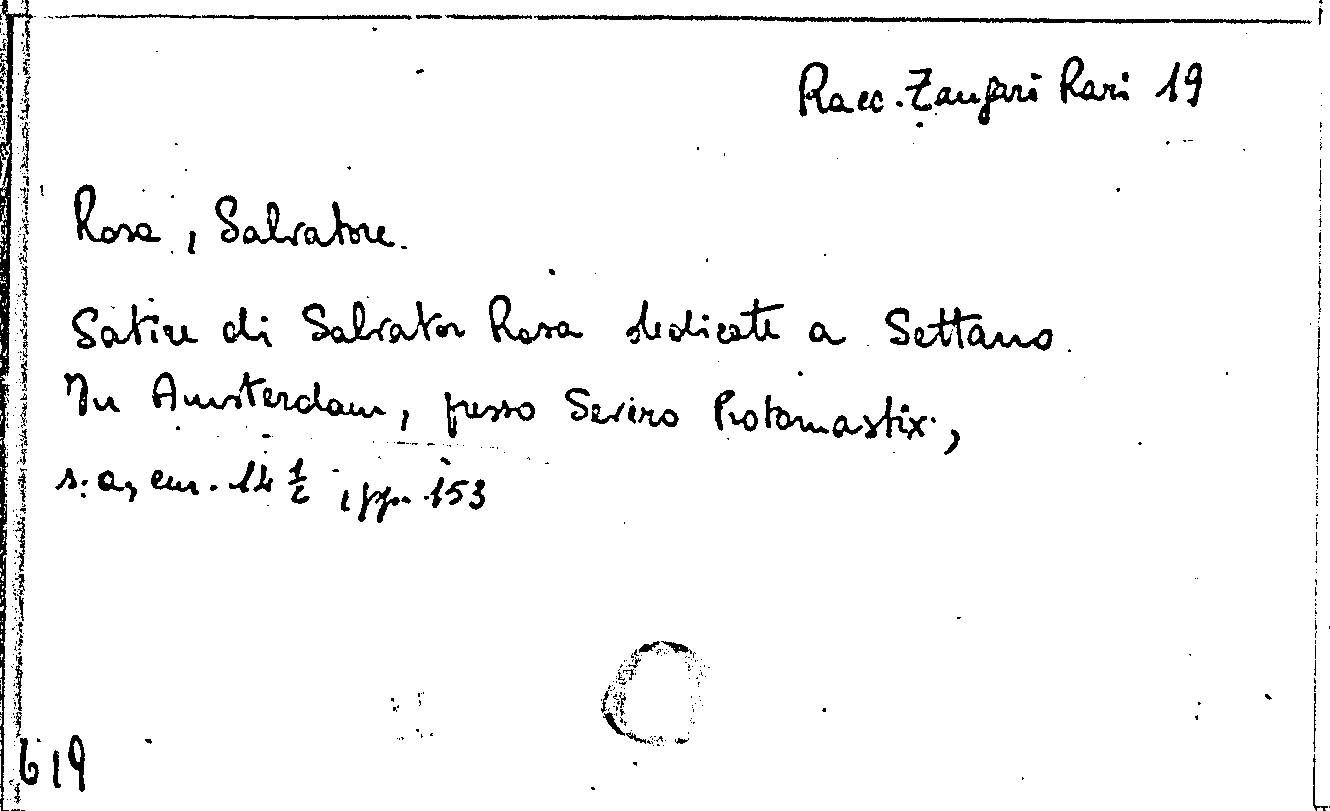 Racc. Zangari Rari 19
Rosa, Salvatore.
Satire di Salvator Rosa dedicate a Settano.
In Amsterdam, presso Severo Protomastix,
s. a, cm. 14 ½, pp. 153
619